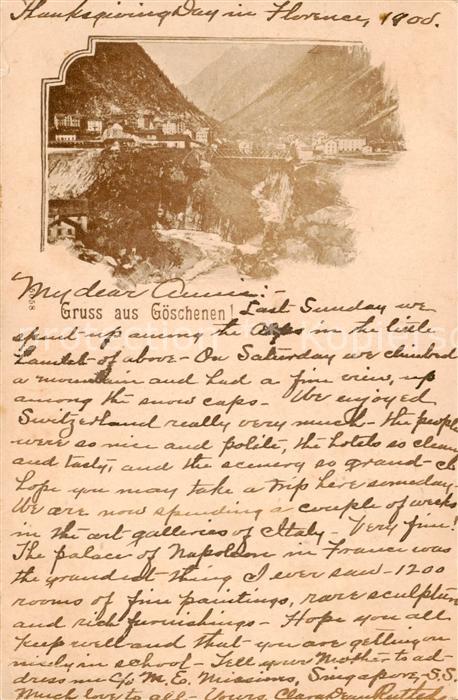 Thanksgiving Day in Florence, 1900.
My dear Annie:-
Gruss aus Göschenen!
Last Sunday we
spent up among the Alps in the little
Hamlet of above - On Saturday we climbed
a mountain and had a fine view, up
among the snow caps - We enjoyed
Switzerland really very much - the people
were so nice and polite, the hotels so clean
and tasty, and the scenery so grand - I
hope you may take a trip here someday -
We are now spending a couple of weeks
in the art galleries of Italy - Very fine!
The palace of Napoleon in France was
the grandest thing I ever saw - 1200
rooms of fine paintings, rare sculpture
and rich furnishings - Hope you all
keep well and that you are getting on
nicely in school - Tell your Mother to ad-
dress me c/o M. E. Missions, Singapore, S.S.
Much love to all - Yours, Clara